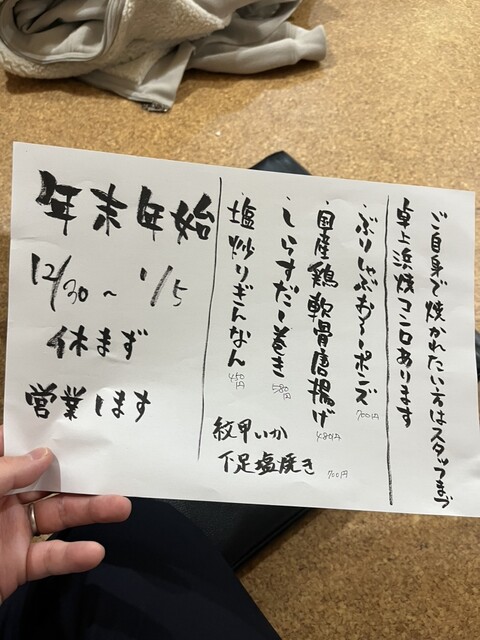 ご自身で焼かれたい方はスタッフまで
卓上浜焼コンロあります
・ぶりしゃぶおろしポンズ
700円
国産鶏軟骨唐揚げ
480円
・しらすだし巻き
580円
・塩炒りぎんなん
450円
紋甲いか
下足塩焼き 700円
年末年始
12/30～1/5
休まず
営業します